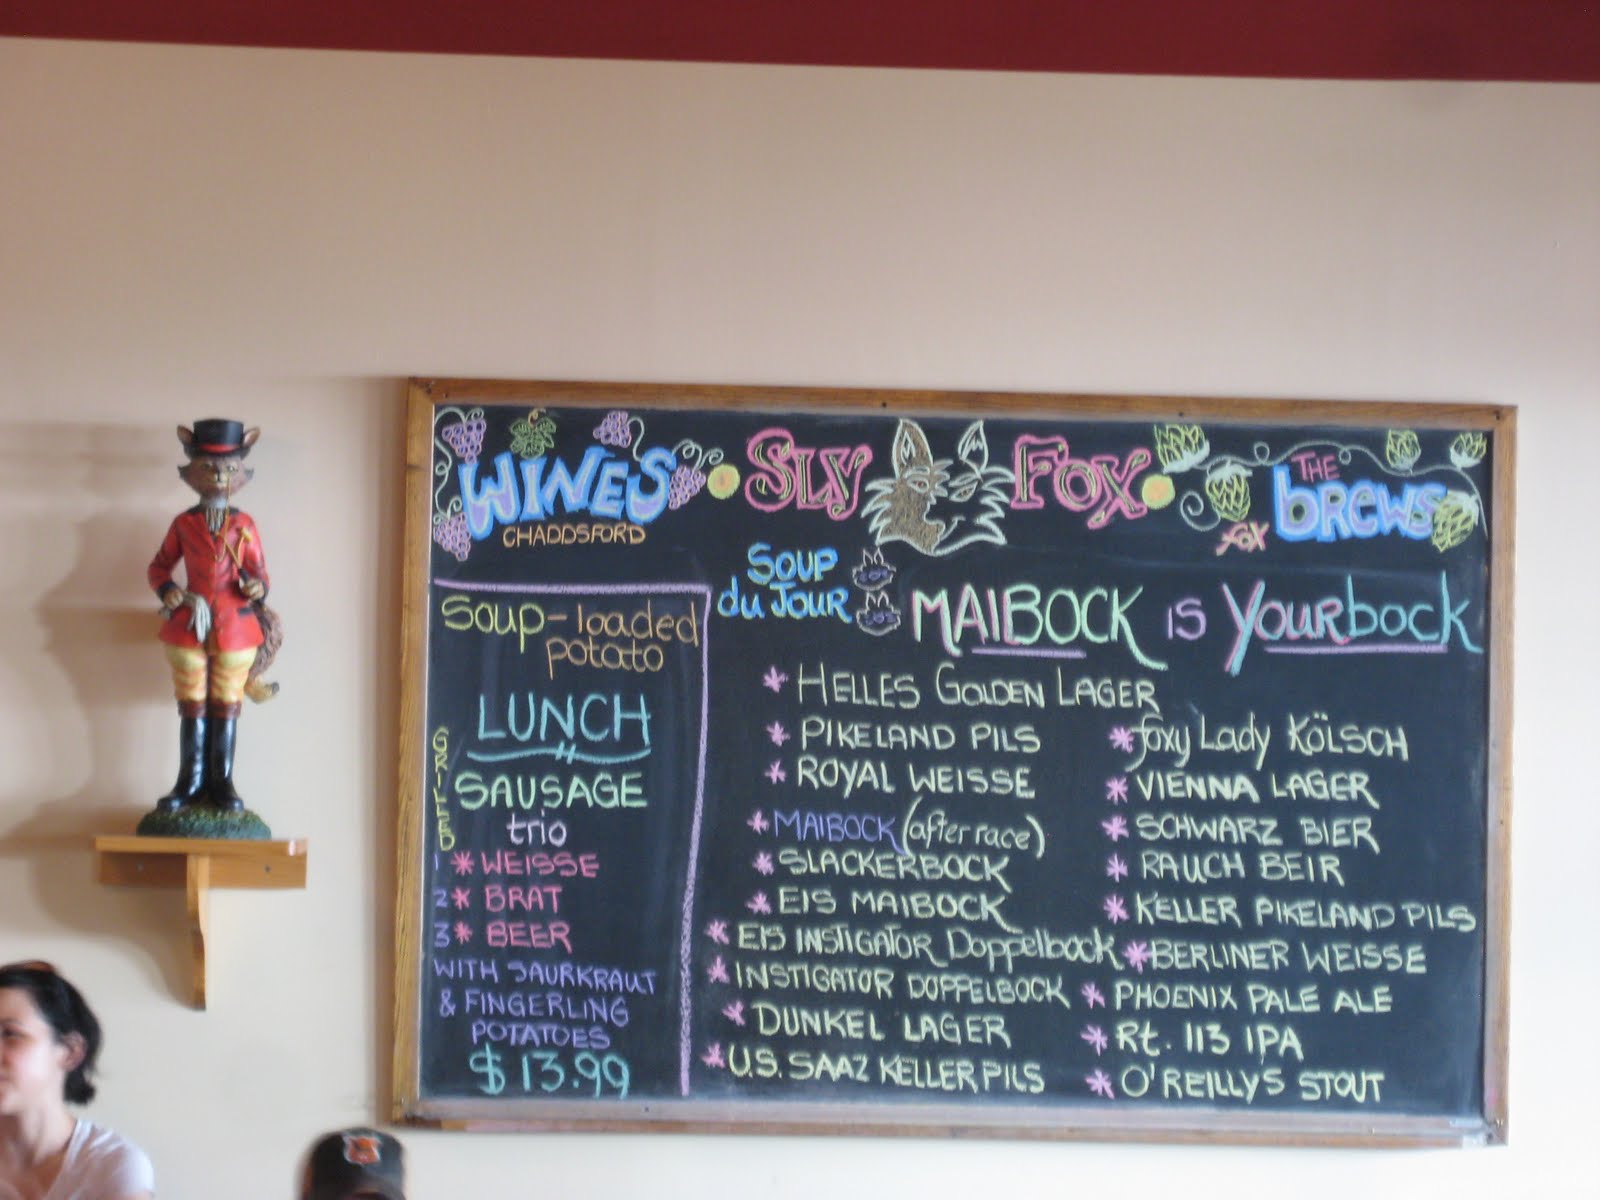 WINES
CHADDSFORD
SLY FOX
THE
BREWS
fox
SOUP
du JOUR
MAIBOCK IS YOURbock
SOUP-loaded
potato
LUNCH
GRILLED
SAUSAGE
trio
1 * WEISSE
2 * BRAT
3 * BEER
WITH SAURKRAUT
& FINGERLING
POTATOES
$ 13.99
* HELLES GOLDEN LAGER
* PIKELAND PILS
* ROYAL WEISSE
* MAIBOCK (after race)
* SLACKERBOCK
* EIS MAIBOCK
* EIS INSTIGATOR Doppelbock
* INSTIGATOR DOPPELBOCK
* DUNKEL LAGER
* U.S. SAAZ KELLER PILS
* foxy Lady KÖLSCH
* VIENNA LAGER
* SCHWARZ BIER
* RAUCH BEIR
* KELLER PIKELAND PILS
* BERLINER WEISSE
* PHOENIX PALE ALE
* Rt. 113 IPA
* O'REILLY'S STOUT